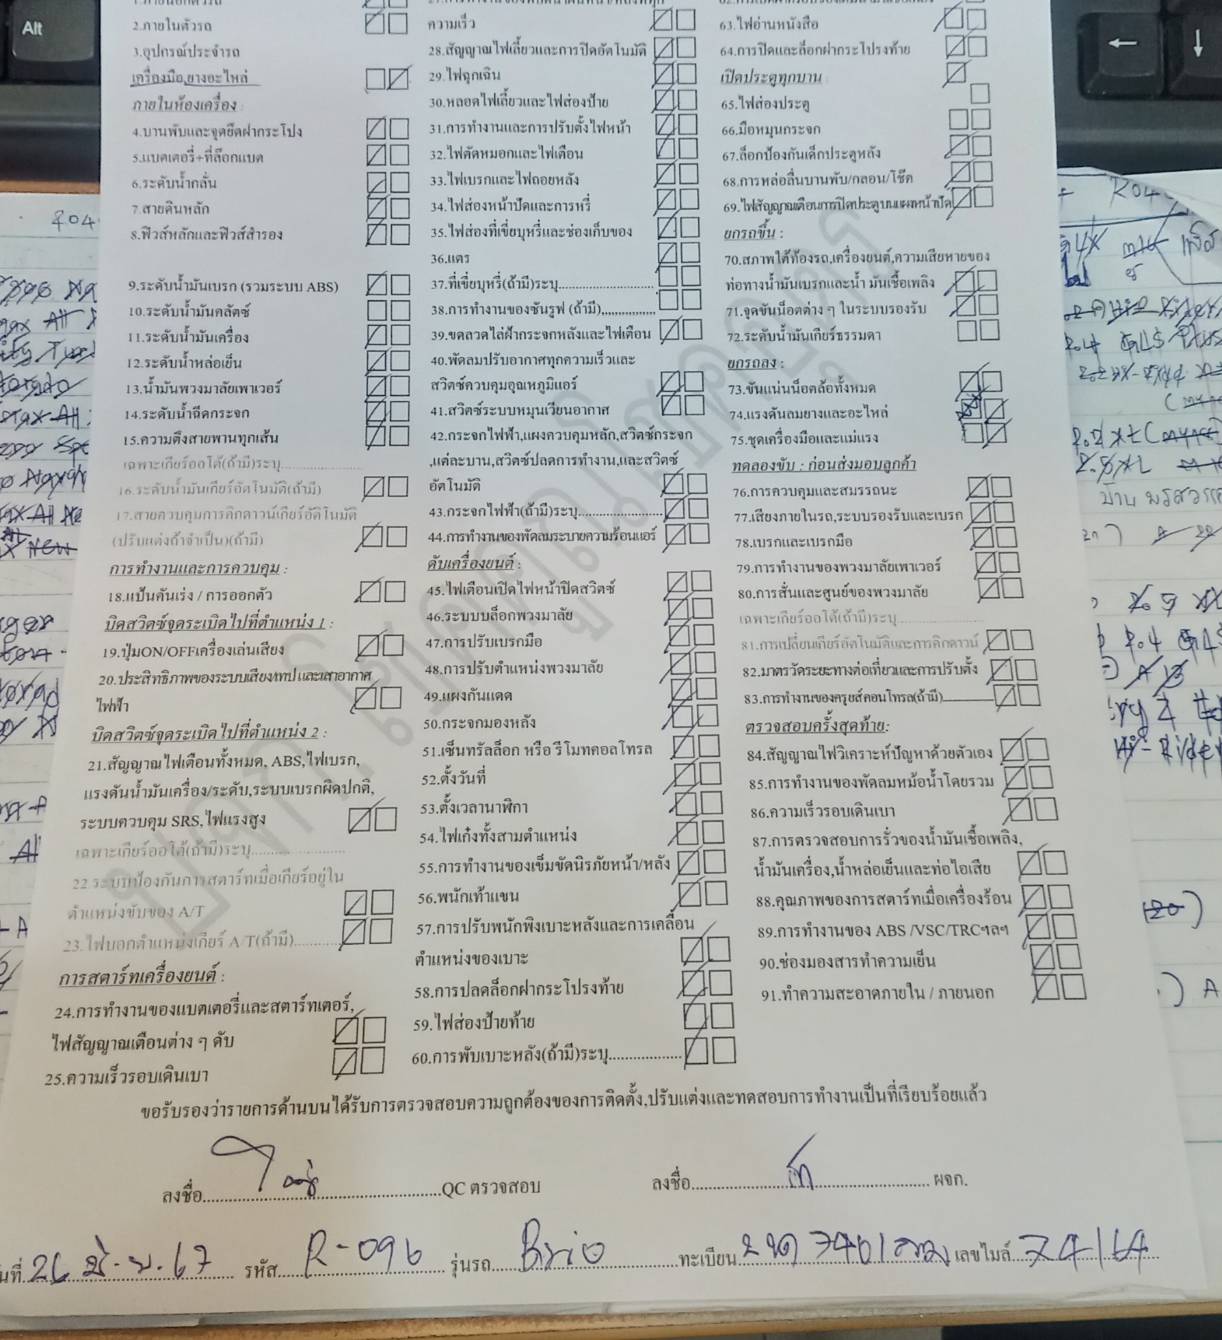 Alt
2.ภายในตัวรถ
3.อุปกรณ์ประจำรถ
เครื่องมือ,ยางอะไหล่
ภายในห้องเครื่อง
4.บานพับและจุดยึดฝากระโปง
5.แบตเตอรี่+ที่ล๊อกแบต
6.ระดับน้ำกลั่น
7.สายดินหลัก
8.ฟิวส์หลักและฟิวส์สำรอง
9.ระดับน้ำมันเบรก (รวมระบบ ABS)
10.ระดับน้ำมันคลัตซ์
11.ระดับน้ำมันเครื่อง
12.ระดับน้ำหล่อเย็น
13.น้ำมันพวงมาลัยเพาเวอร์
14.ระดับน้ำฉีดกระจก
15.ความตึงสายพานทุกเส้น
เฉพาะเกียร์ออโต้(ถ้ามี)ระบุ
16.ระดับน้ำมันเกียร์อัตโนมัติ(ถ้ามี)
17.สายควบคุมการคิกดาวน์เกียร์อัตโนมัติ
(ปรับแต่งถ้าจำเป็น)(ถ้ามี)
การทำงานและการควบคุม :
18.แป้นคันเร่ง / การออกตัว
บิดสวิตซ์จุดระเบิดไปที่ตำแหน่ง 1 :
19.ปุ่มON/OFFเครื่องเล่นเสียง
20.ประสิทธิภาพของระบบเสียง/เทป และเสาอากาศ
ไฟฟ้า
บิดสวิตซ์จุดระเบิดไปที่ตำแหน่ง 2 :
21.สัญญาณไฟเตือนทั้งหมด, ABS,ไฟเบรก,
แรงดันน้ำมันเครื่อง/ระดับ,ระบบเบรกผิดปกติ,
ระบบควบคุม SRS,ไฟแรงสูง
เฉพาะเกียร์ออโต้(ถ้ามี)ระบุ
22 ระบบป้องกันการสตาร์ทเมื่อเกียร์อยู่ใน
ตำแหน่งขับของ A/T
23.ไฟบอกตำแหน่งเกียร์ A/T(ถ้ามี)
การสตาร์ทเครื่องยนต์ :
24.การทำงานของแบตเตอรี่และสตาร์ทเตอร์,
ไฟสัญญาณเตือนต่าง ๆ ดับ
25.ความเร็วรอบเดินเบา
ความเร็ว
28.สัญญาณไฟเลี้ยวและการปิดอัตโนมัติ
29.ไฟฉุกเฉิน
30.หลอดไฟเลี้ยวและไฟส่องป้าย
31.การทำงานและการปรับตั้งไฟหน้า
32.ไฟตัดหมอกและไฟเตือน
33.ไฟเบรกและไฟถอยหลัง
34.ไฟส่องหน้าปัดและการหรี่
35.ไฟส่องที่เขี่ยบุหรี่และช่องเก็บของ
36.แตร
37.ที่เขี่ยบุหรี่(ถ้ามี)ระบุ
38.การทำงานของซันรูฟ (ถ้ามี)
39.ขดลวดไล่ฝ้ากระจกหลังและไฟเตือน
40.พัดลมปรับอากาศทุกความเร็วและ
สวิตซ์ควบคุมอุณหภูมิแอร์
41.สวิตซ์ระบบหมุนเวียนอากาศ
42.กระจกไฟฟ้า,แผงควบคุมหลัก,สวิตซ์กระจก
,แต่ละบาน,สวิตซ์ปลดการทำงาน,และสวิตซ์
อัตโนมัติ
43.กระจกไฟฟ้า(ถ้ามี)ระบุ
44.การทำงานของพัดลมระบายความร้อนแอร์
ดับเครื่องยนต์ :
45.ไฟเตือนเปิดไฟหน้าปิดสวิตซ์
46.ระบบบล็อกพวงมาลัย
47.การปรับเบรกมือ
48.การปรับตำแหน่งพวงมาลัย
49.แผงกันแดด
50.กระจกมองหลัง
51.เซ็นทรัลล็อก หรือ รีโมทคอลโทรล
52.ตั้งวันที่
53.ตั้งเวลานาฬิกา
54.ไฟเก๋งทั้งสามตำแหน่ง
55.การทำงานของเข็มขัดนิรภัยหน้า/หลัง
56.พนักเท้าแขน
57.การปรับพนักพิงเบาะหลังและการเคลื่อน
ตำแหน่งของเบาะ
58.การปลดล็อกฝากระโปรงท้าย
59.ไฟส่องป้ายท้าย
60.การพับเบาะหลัง(ถ้ามี)ระบุ
63.ไฟอ่านหนังสือ
64.การปิดและล็อกฝากระโปรงท้าย
เปิดประตูทุกบาน
65.ไฟส่องประตู
66.มือหมุนกระจก
67.ล็อกป้องกันเด็กประตูหลัง
68.การหล่อลื่นบานพับ/กลอน/โช๊ค
69.ไฟสัญญาณเตือนการปิดประตูบนแผงหน้าปัด
ยกรถขึ้น :
70.สภาพใต้ท้องรถ,เครื่องยนต์,ความเสียหายของ
ท่อทางน้ำมันเบรกและน้ำ มันเชื้อเพลิง
71.จุดขันน็อตต่าง ๆ ในระบบรองรับ
72.ระดับน้ำมันเกียร์ธรรมดา
ยกรถลง :
73.ขันแน่นน็อตล้อทั้งหมด
74.แรงดันลมยางและอะไหล่
75.ชุดเครื่องมือและแม่แรง
ทดลองขับ : ก่อนส่งมอบลูกค้า
76.การควบคุมและสมรรถนะ
77.เสียงภายในรถ,ระบบรองรับและเบรก
78.เบรกและเบรกมือ
79.การทำงานของพวงมาลัยเพาเวอร์
80.การสั่นและศูนย์ของพวงมาลัย
เฉพาะเกียร์ออโต้(ถ้ามี)ระบุ
81.การเปลี่ยนเกียร์อัตโนมัติและการคิกดาวน์
82.มาตรวัดระยะทางต่อเที่ยวและการปรับตั้ง
83.การทำงานของครุยส์คอนโทรล(ถ้ามี)
ตรวจสอบครั้งสุดท้าย:
84.สัญญาณไฟวิเคราะห์ปัญหาด้วยตัวเอง
85.การทำงานของพัดลมหม้อน้ำโดยรวม
86.ความเร็วรอบเดินเบา
87.การตรวจสอบการรั่วของน้ำมันเชื้อเพลิง,
น้ำมันเครื่อง,น้ำหล่อเย็นและท่อไอเสีย
88.คุณภาพของการสตาร์ทเมื่อเครื่องร้อน
89.การทำงานของ ABS /VSC/TRCฯลฯ
90.ช่องมองสารทำความเย็น
91.ทำความสะอาดภายใน / ภายนอก
ขอรับรองว่ารายการด้านบนได้รับการตรวจสอบความถูกต้องของการติดตั้ง,ปรับแต่งและทดสอบการทำงานเป็นที่เรียบร้อยแล้ว
ลงชื่อ QC ตรวจสอบ ลงชื่อ ผจก.
26 มิ.ย.67 รหัส R-096 รุ่นรถ Brio ทะเบียน 2ขฤ 7401 กทม เลขไมล์ 74164